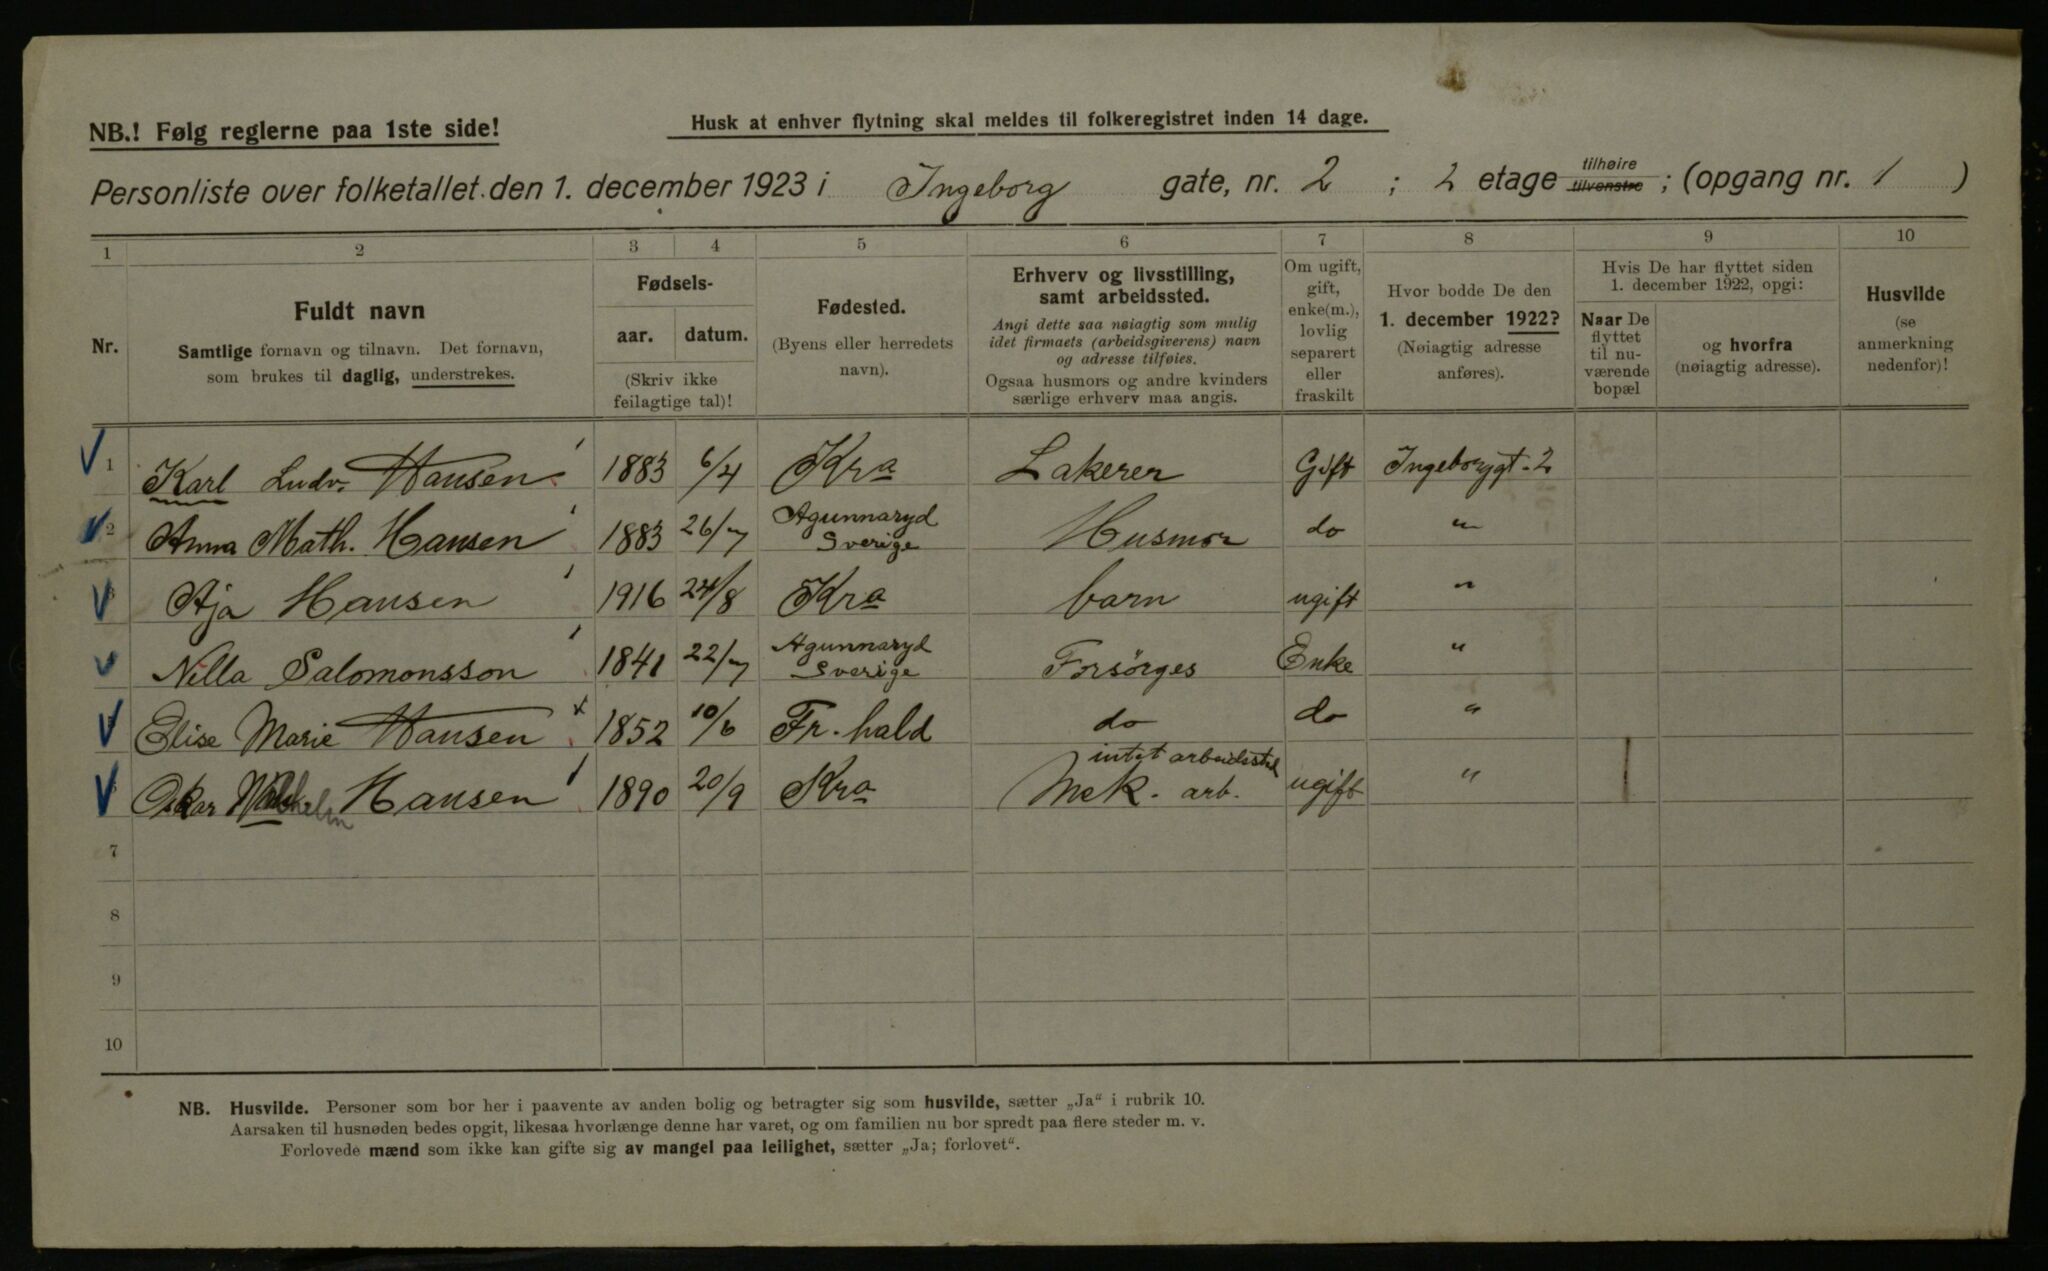 NB.! Følg reglerne paa 1ste side!
Husk at enhver flytning skal meldes til folkeregistret inden 14 dage.
Personliste over folketallet den 1. december 1923 i Ingeborg gate, nr. 2 ; 2 etage tilhøire tilvenstre ; (opgang nr. 1 )
1 2 3 4 5 6 7 8 9 10
Nr.
Fuldt navn
Samtlige fornavn og tilnavn. Det fornavn,
som brukes til daglig, understrekes.
Fødsels-
aar. datum.
(Skriv ikke
feilagtige tal)!
Fødested.
(Byens eller herredets
navn).
Erhverv og livsstilling,
samt arbeidssted.
Angi dette saa nøiagtig som mulig
idet firmaets (arbeidsgiverens) navn
og adresse tilføies.
Ogsaa husmors og andre kvinders
særlige erhverv maa angis.
Om ugift,
gift,
enke(m.),
lovlig
separert
eller
fraskilt
Hvor bodde De den
1. december 1922?
(Nøiagtig adresse
anføres).
Hvis De har flyttet siden
1. december 1922, opgi:
Naar De
flyttet
til nu-
værende
bopæl
og hvorfra
(nøiagtig adresse).
Husvilde
(se
anmerkning
nedenfor)!
1 Karl Ludv. Hansen 1883 6/4 Kra Lakerer Gift Ingeborggt. 2
2 Anna Math. Hansen 1883 26/7 Agunnaryd Sverige Husmor do "
3 Aja Hansen 1916 24/8 Kra barn ugift "
Nilla Salomonsson 1841 22/7 Agunnaryd Sverige Forsörges Enke "
Elise Marie Hansen 1852 10/6 Fr. hald do do "
Oskar Hansen 1890 20/9 Kra intet arbeidssted Mek. arb. ugift "
7
8
9
10
NB. Husvilde. Personer som bor her i paavente av anden bolig og betragter sig som husvilde, sætter „Ja“ i rubrik 10.
Aarsaken til husnøden bedes opgit, likesaa hvorlænge denne har varet, og om familien nu bor spredt paa flere steder m. v.
Forlovede mænd som ikke kan gifte sig av mangel paa leilighet, sætter „Ja; forlovet“.